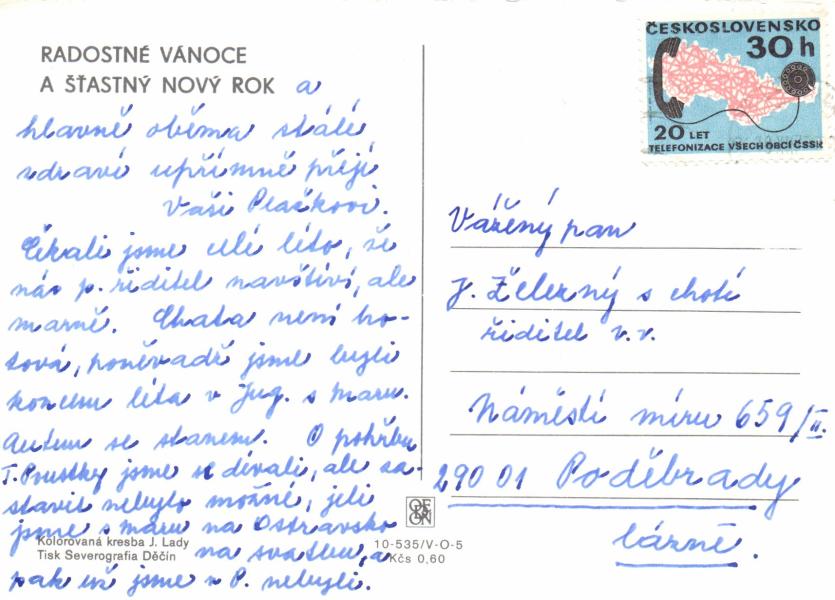 RADOSTNÉ VÁNOCE
A ŠŤASTNÝ NOVÝ ROK a
hlavně oběma stálé
zdraví upřímně přejí
Vaši Plaškovi.
Čekali jsme celé léto, že
nás p. ředitel navštíví, ale
marně. Chata není ho-
tová, poněvadž jsme byli
koncem léta v Jug. s mara.
Autem se stanem. O pohřbu
T. Poustky jsme se dívali, ale za-
stavit nebylo možné, jeli
jsme s maru na Ostravsko
na svatbu, a
pak už jsme v P. nebyli.
Kolorovaná kresba J. Lady
Tisk Severografia Děčín
ORBIS
10-535/V-O-5
Kčs 0,60
ČESKOSLOVENSKO
30 h
20 LET
TELEFONIZACE VŠECH OBCÍ ČSSR
Vážený pan
J. Železný s chotí
ředitel v.v.
Náměstí míru 659/II.
290 01 Poděbrady
lázně.